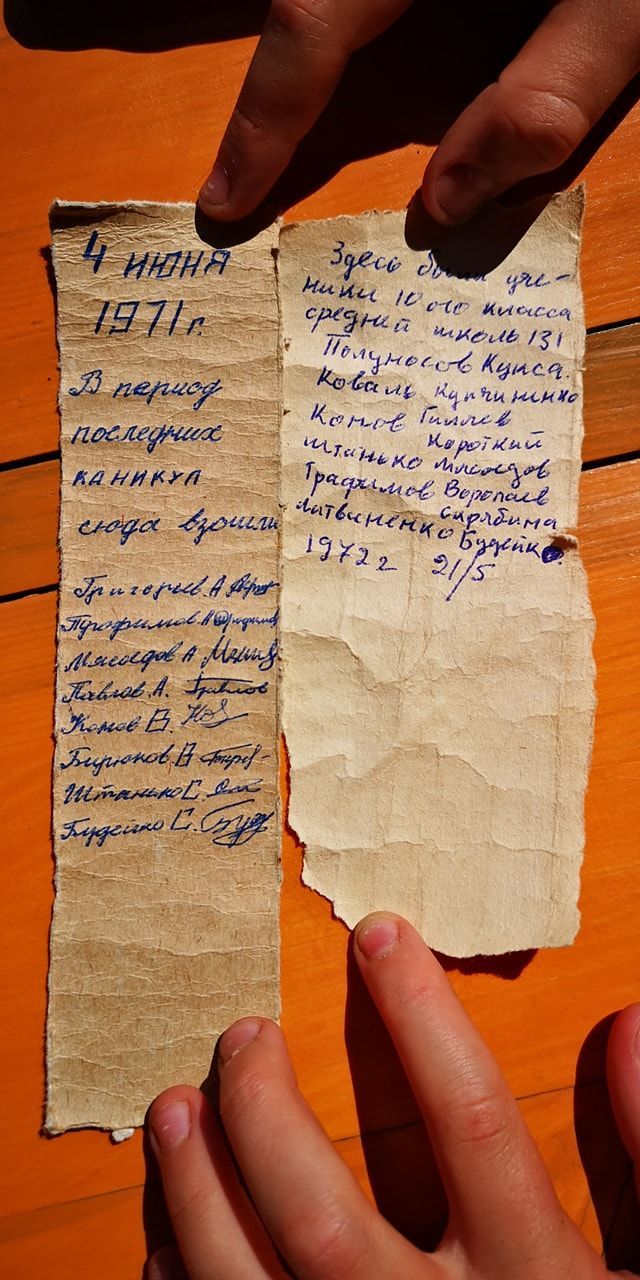 4 июня
1971 г.
В период
последних
каникул
сюда взошли
Григорьев А
Трофимов А
Мясоедов А
Павлов А.
Конов В.
Бирюков В
Штанько С.
Будейко С.
Здесь были уче-
ники 10 ого класса
средней школь 131
Полуносов Купса.
Коваль Купчиненко
Конов Гиллев
Короткий
Штанько Мясоедов
Трафимов Воропаев
Скрябина
Литвиненко Будейко.
1972 г 21/5